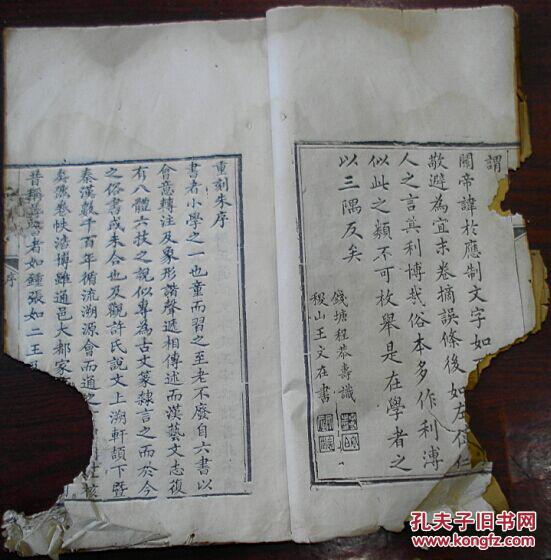 謂
關帝諱於應制文字如
敬避為宜末卷摘誤條後如左右仁
人之言其利博哉俗本多作利溥
似此之類不可枚舉是在學者之
以三隅反矣
錢塘程恭壽識
稷山王文在書
重刻朱序
書者小學之一也童而習之至老不廢自六書以
會意轉注及象形諧聲遞相傳述而漢藝文志復
有八體六技之說似專為古文篆隸言之而於今
之俗書或未合也及觀許氏說文上溯軒頡下暨
秦漢數千百年循流溯源會而通之
卷帙浩博雖通邑大都家
昔稱善書者如鍾張如二王
序
孔夫子旧书网